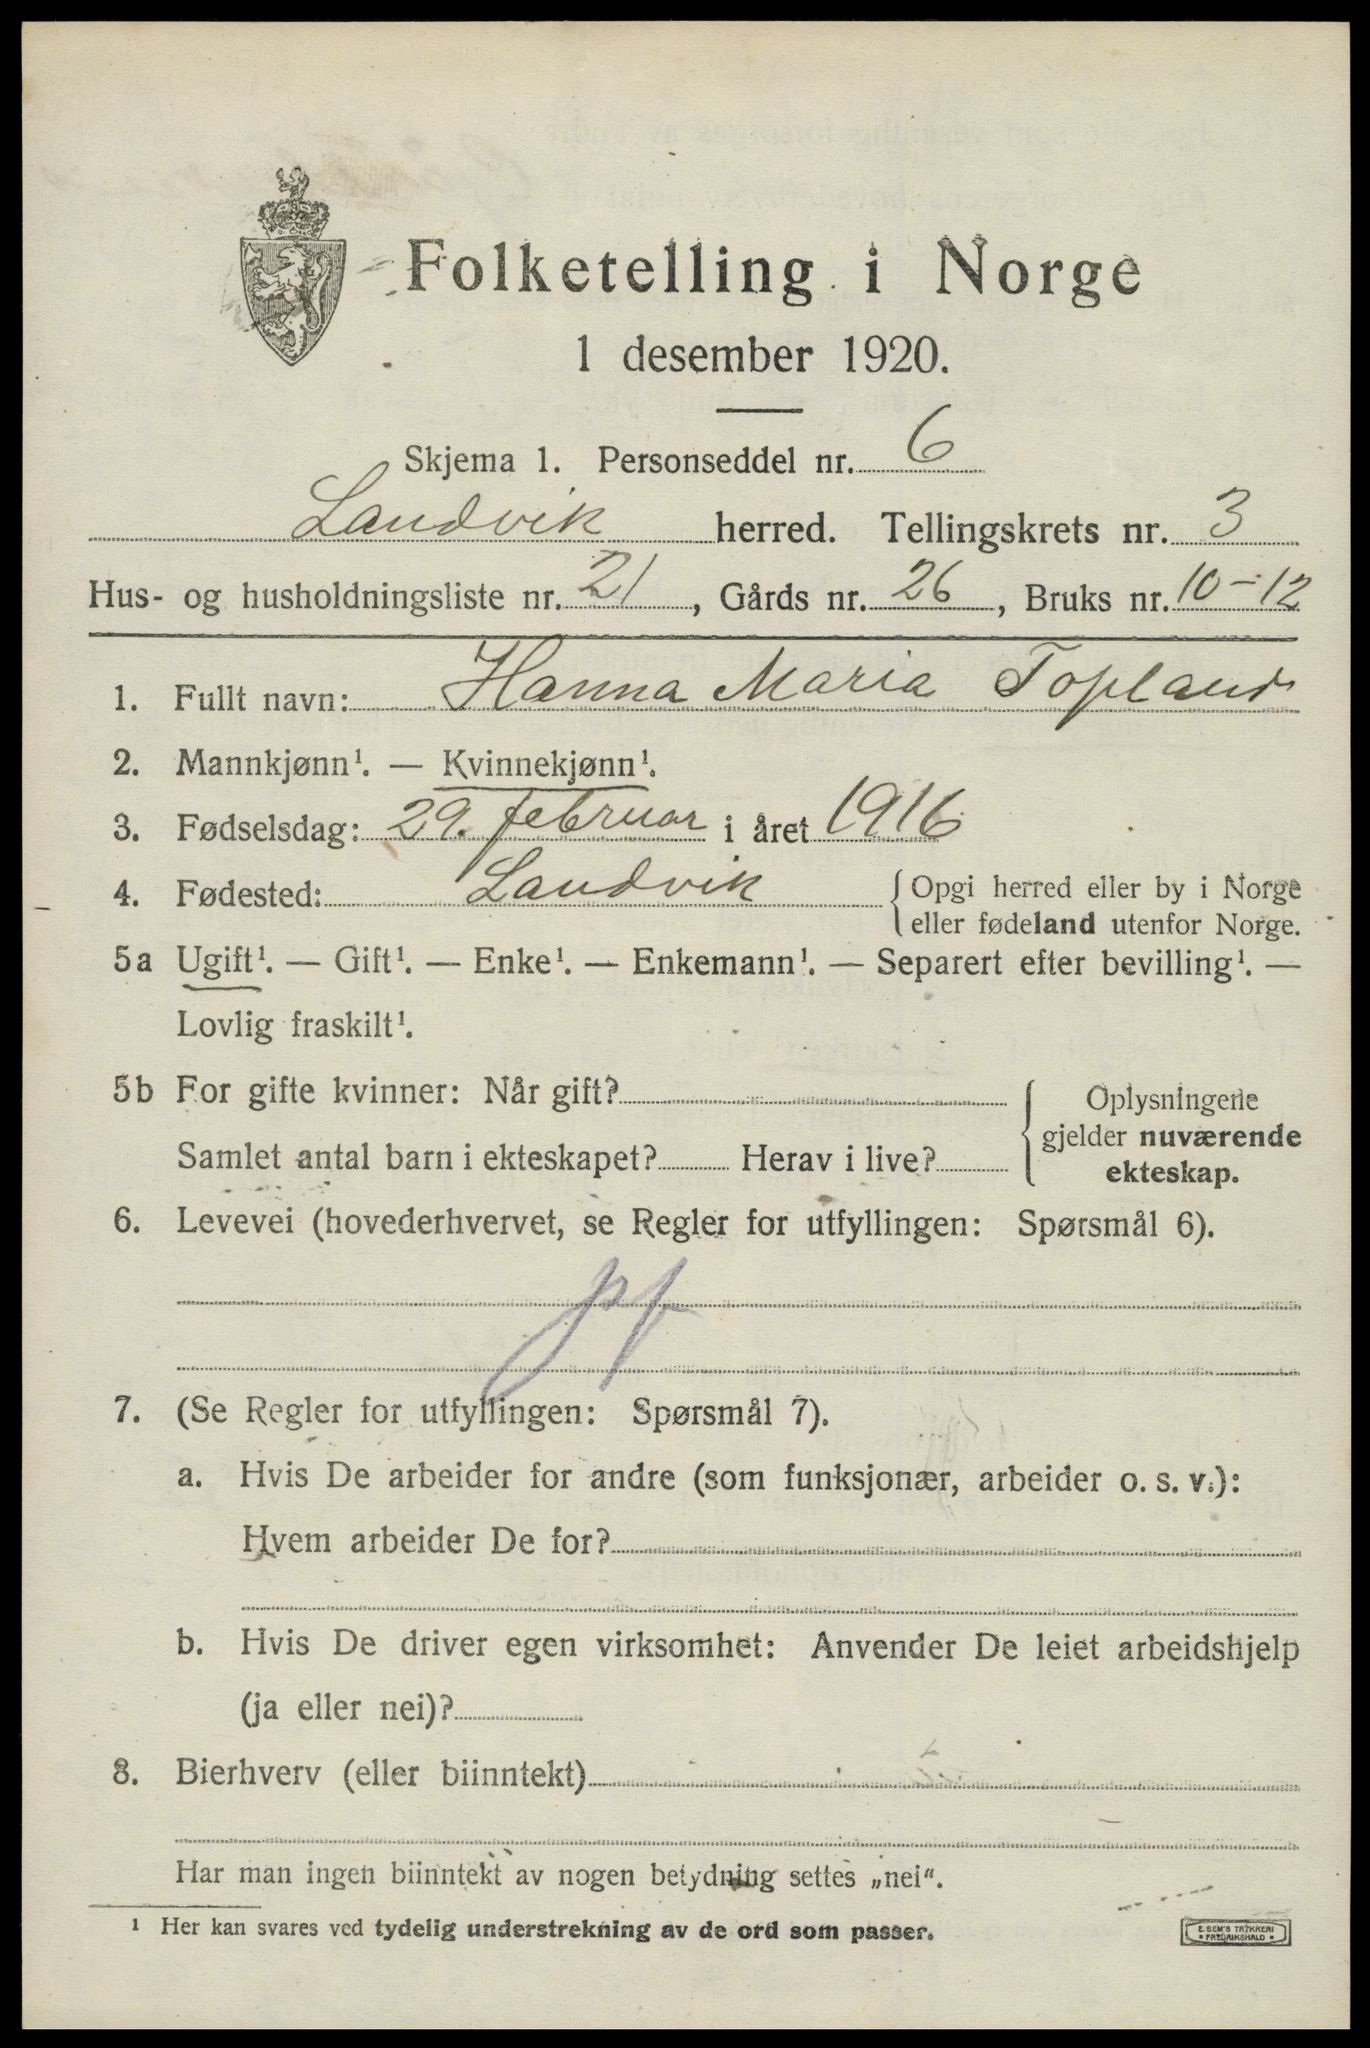 Folketelling i Norge
1 desember 1920.
Skjema 1. Personseddel nr. 6
Landvik herred. Tellingskrets nr. 3
Hus- og husholdningsliste nr. 21, Gårds nr. 26, Bruks nr. 10-12
1. Fullt navn: Hanna Maria Topland
2. Mannkjønn¹. — Kvinnekjønn¹.
3. Fødselsdag: 29. februar i året 1916
4. Fødested: Landvik { Opgi herred eller by i Norge
eller fødeland utenfor Norge.
5a Ugift¹. — Gift¹. — Enke¹. — Enkemann¹. — Separert efter bevilling¹. —
Lovlig fraskilt¹.
5b For gifte kvinner: Når gift?
Samlet antal barn i ekteskapet? Herav i live?
Oplysningene
gjelder nuværende
ekteskap.
6. Levevei (hovederhvervet, se Regler for utfyllingen: Spørsmål 6).
pf
7. (Se Regler for utfyllingen: Spørsmål 7).
a. Hvis De arbeider for andre (som funksjonær, arbeider o. s. v.):
Hvem arbeider De for?
b. Hvis De driver egen virksomhet: Anvender De leiet arbeidshjelp
(ja eller nei)?
8. Bierhverv (eller biinntekt)
Har man ingen biinntekt av nogen betydning settes „nei“.
¹ Her kan svares ved tydelig understrekning av de ord som passer.
E. SEM'S TRYKKERI
* FREDRIKSHALD *